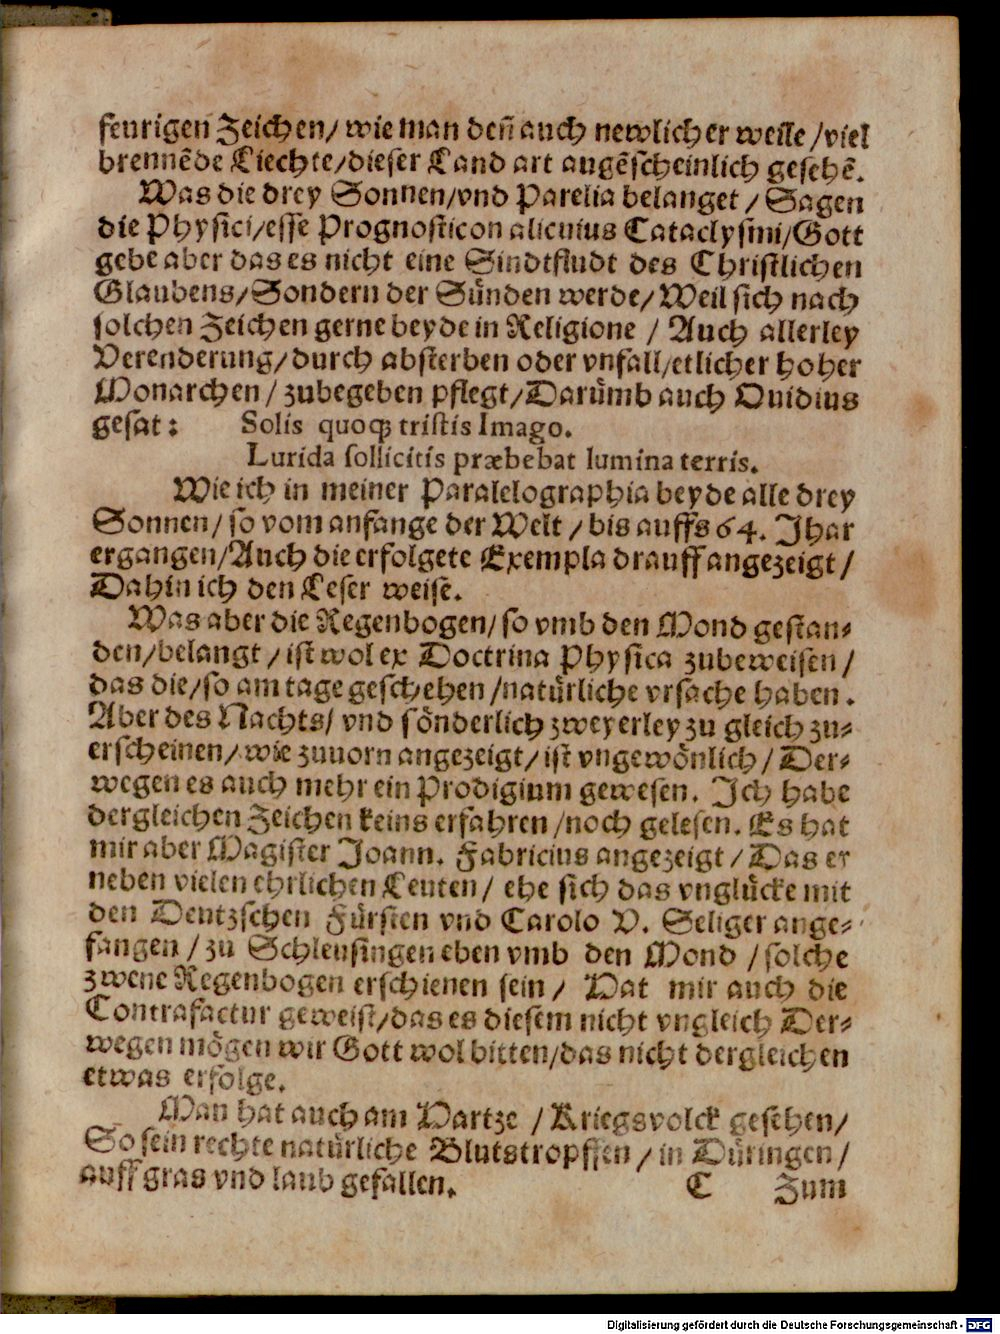 feurigen Zeichen/ wie man deñ auch newlicher weile /viel
brennēde Liechte/dieser Land art augēscheinlich gesehē.
Was die drey Sonnen/vnd Parelia belanget / Sagen
die Physici/esse Prognosticon alicuius Cataclysmi/Gott
gebe aber das es nicht eine Sindtfludt des Christlichen
Glaubens/Sondern der Sünden werde/ Weil sich nach
solchen Zeichen gerne beyde in Religione / Auch allerley
Verenderung/durch absterben oder vnfall/etlicher hoher
Monarchen/ zubegeben pflegt/Darümb auch Ouidius
gesat: Solis quoqꝫ tristis Imago.
Lurida sollicitis præbebat lumina terris.
Wie ich in meiner Paralelographia beyde alle drey
Sonnen/ so vom anfange der Welt / bis auffs 64. Jhar
ergangen/Auch die erfolgete Exempla drauff angezeigt/
Dahin ich den Leser weise.
Was aber die Regenbogen/ so vmb den Mond gestan⸗
den/belangt /ist wol ex Doctrina Physica zubeweisen /
das die/so am tage geschehen /natürliche vrsache haben.
Aber des Nachts/ vnd sönderlich zweyerley zu gleich zu⸗
erscheinen/ wie zuuorn angezeigt/ ist vngewönlich/ Der⸗
wegen es auch mehr ein Prodigium gewesen. Ich habe
dergleichen Zeichen keins erfahren /noch gelesen. Es hat
mir aber Magister Joann. Fabricius angezeigt/ Das er
neben vielen ehrlichen Leuten/ ehe sich das vnglücke mit
den Deutzschen Fürsten vnd Carolo V. Seliger ange⸗
fangen / zu Schleusingen eben vmb den Mond /solche
zwene Regenbogen erschienen sein/ Hat mir auch die
Contrafactur geweist/das es diesem nicht vngleich Der⸗
wegen mögen wir Gott wol bitten/das nicht dergleichen
etwas erfolge.
Man hat auch am Hartze / Kriegsvolck gesehen/
So sein rechte natürliche Blutstropffen / in Düringen/
auff gras vnd laub gefallen. C Zum
Digitalisierung gefördert durch die Deutsche Forschungsgemeinschaft - DFG